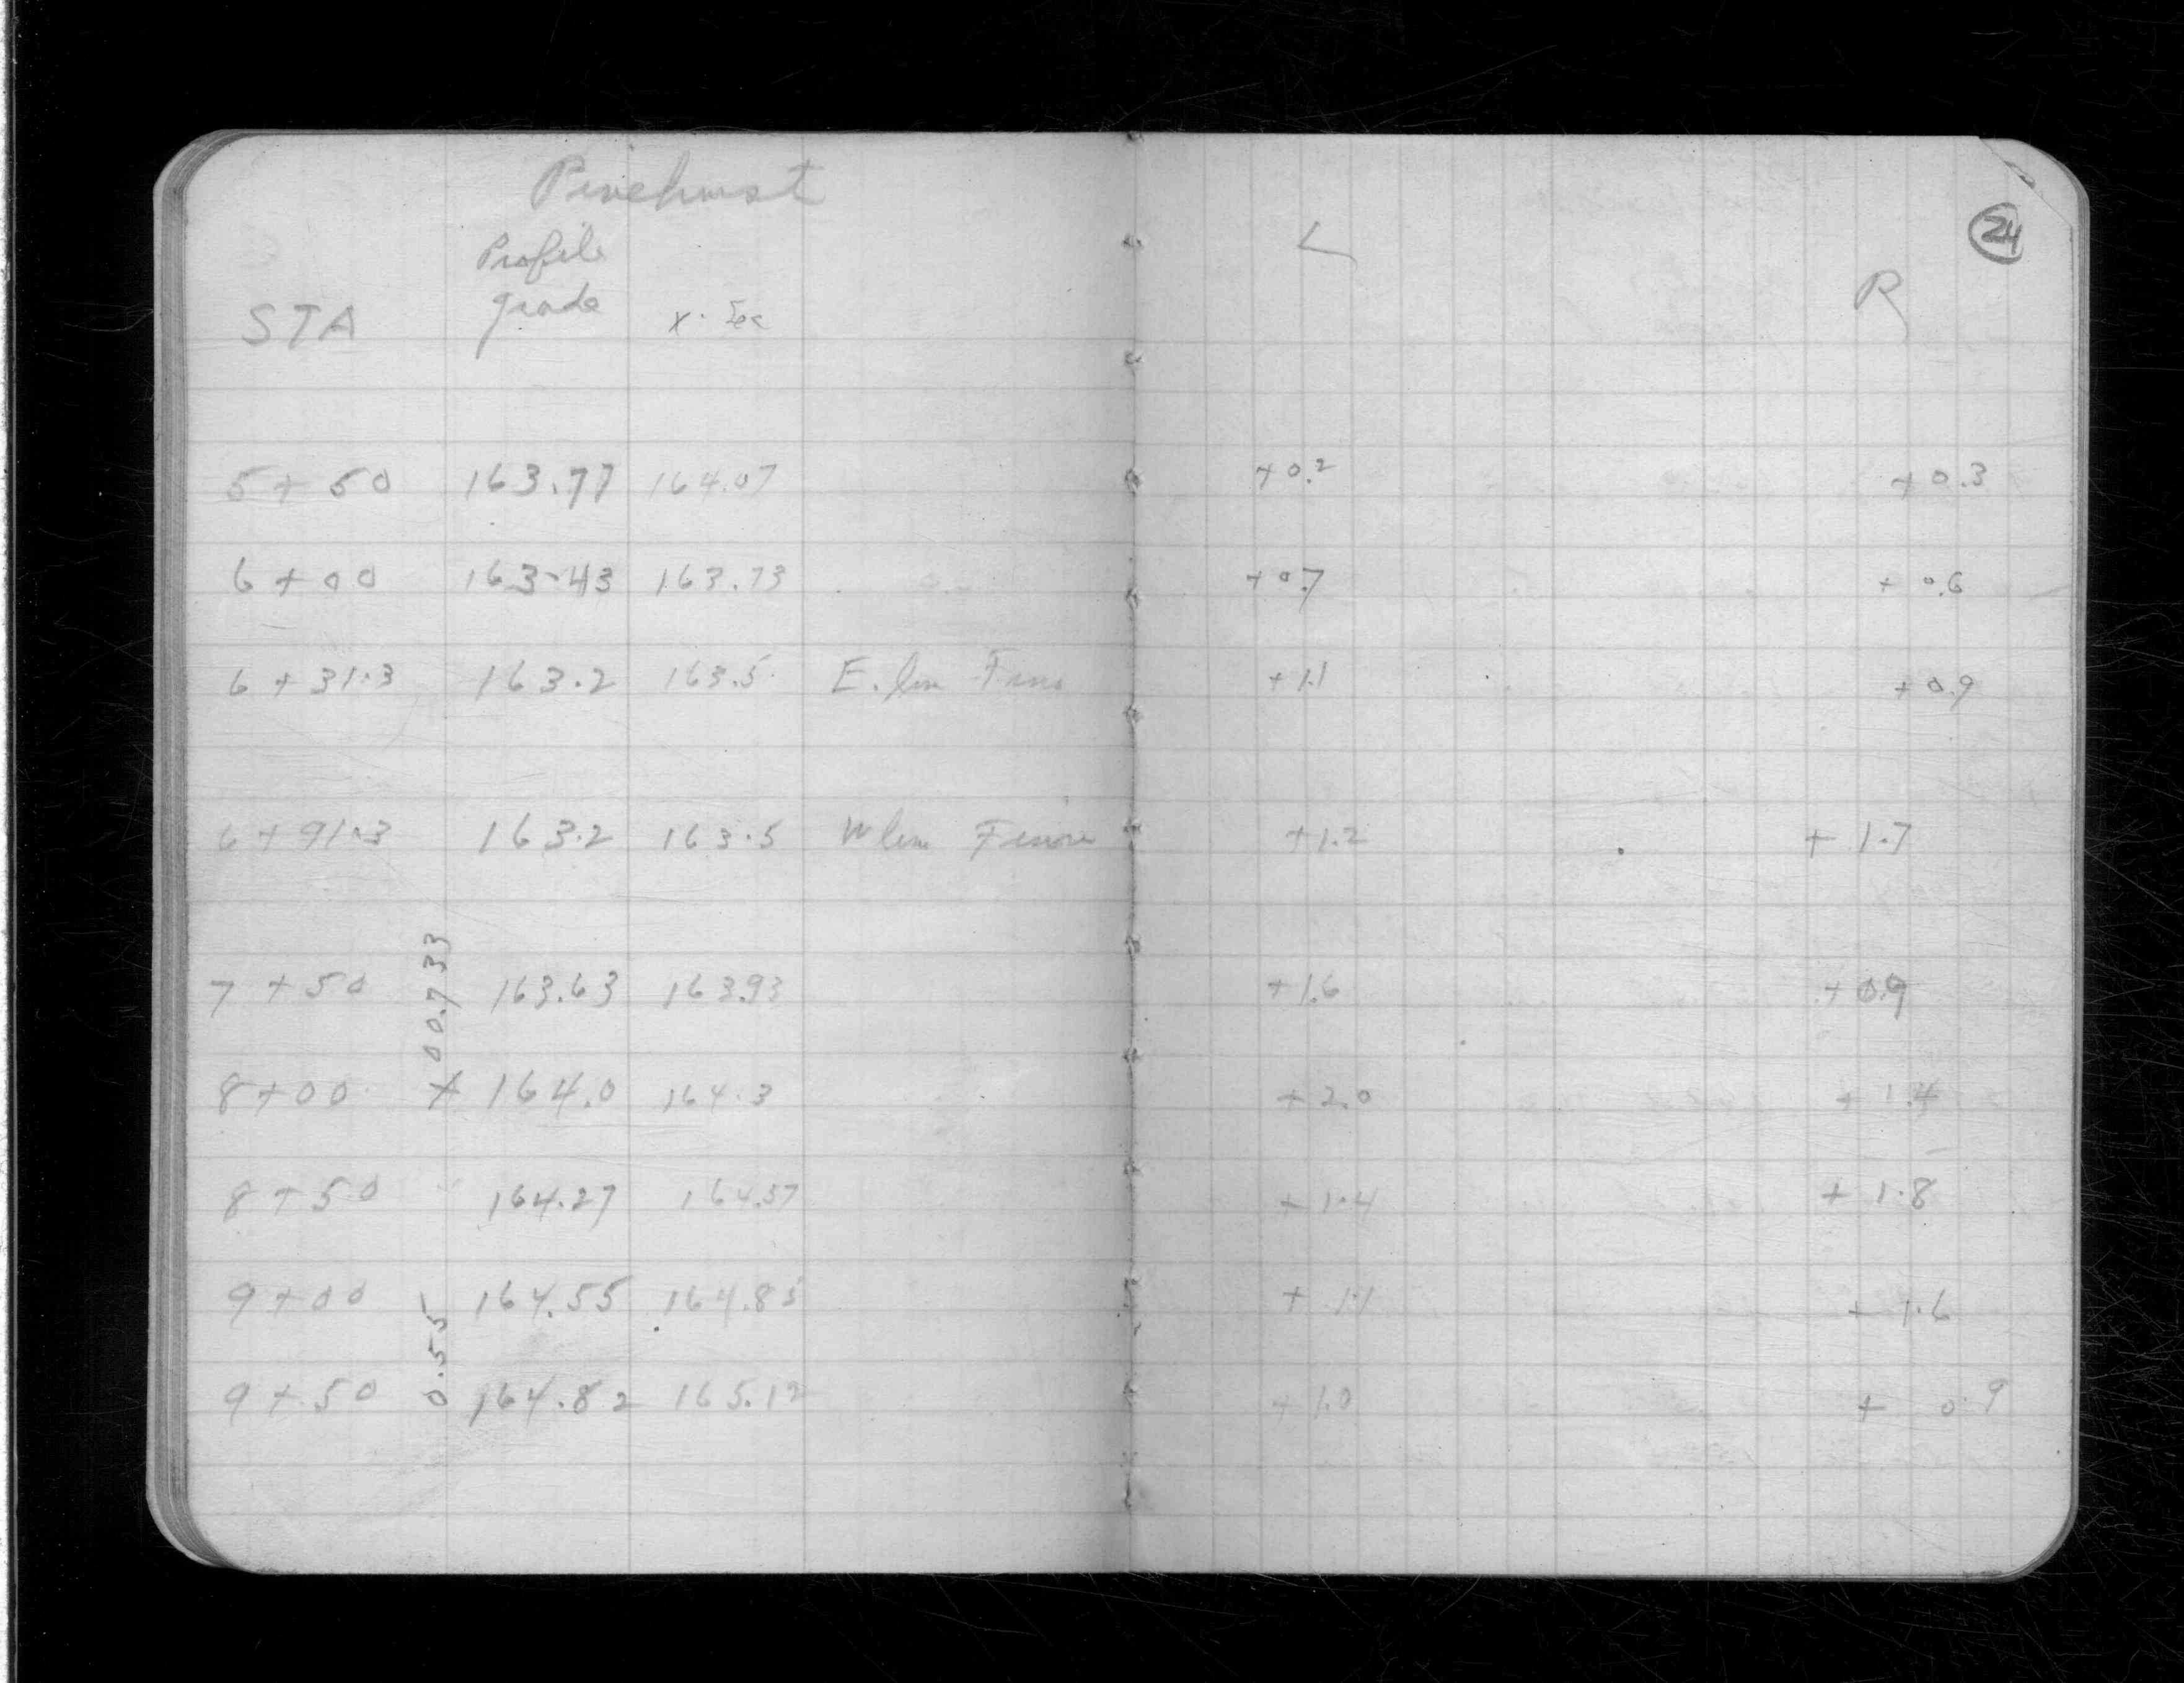 Pinehurst
L
24
Profile
grade
STA
x. Sec
R
5+50 163.77 164.07 +0.2 +0.3
6+00 163.43 163.73 +0.7 +0.6
6+31.3 163.2 163.5 E. lin +1.1 +0.9
6+91.3 163.2 163.5 W lin +1.2 +1.7
7+50 163.63 163.93 +1.6 +0.9
+00.733
8+00 164.0 164.3 +2.0 +1.4
8+50 164.27 164.57 +1.4 +1.8
9+00 164.55 164.85 +1.1 +1.6
0.55
9+50 164.82 165.12 +1.0 +0.9